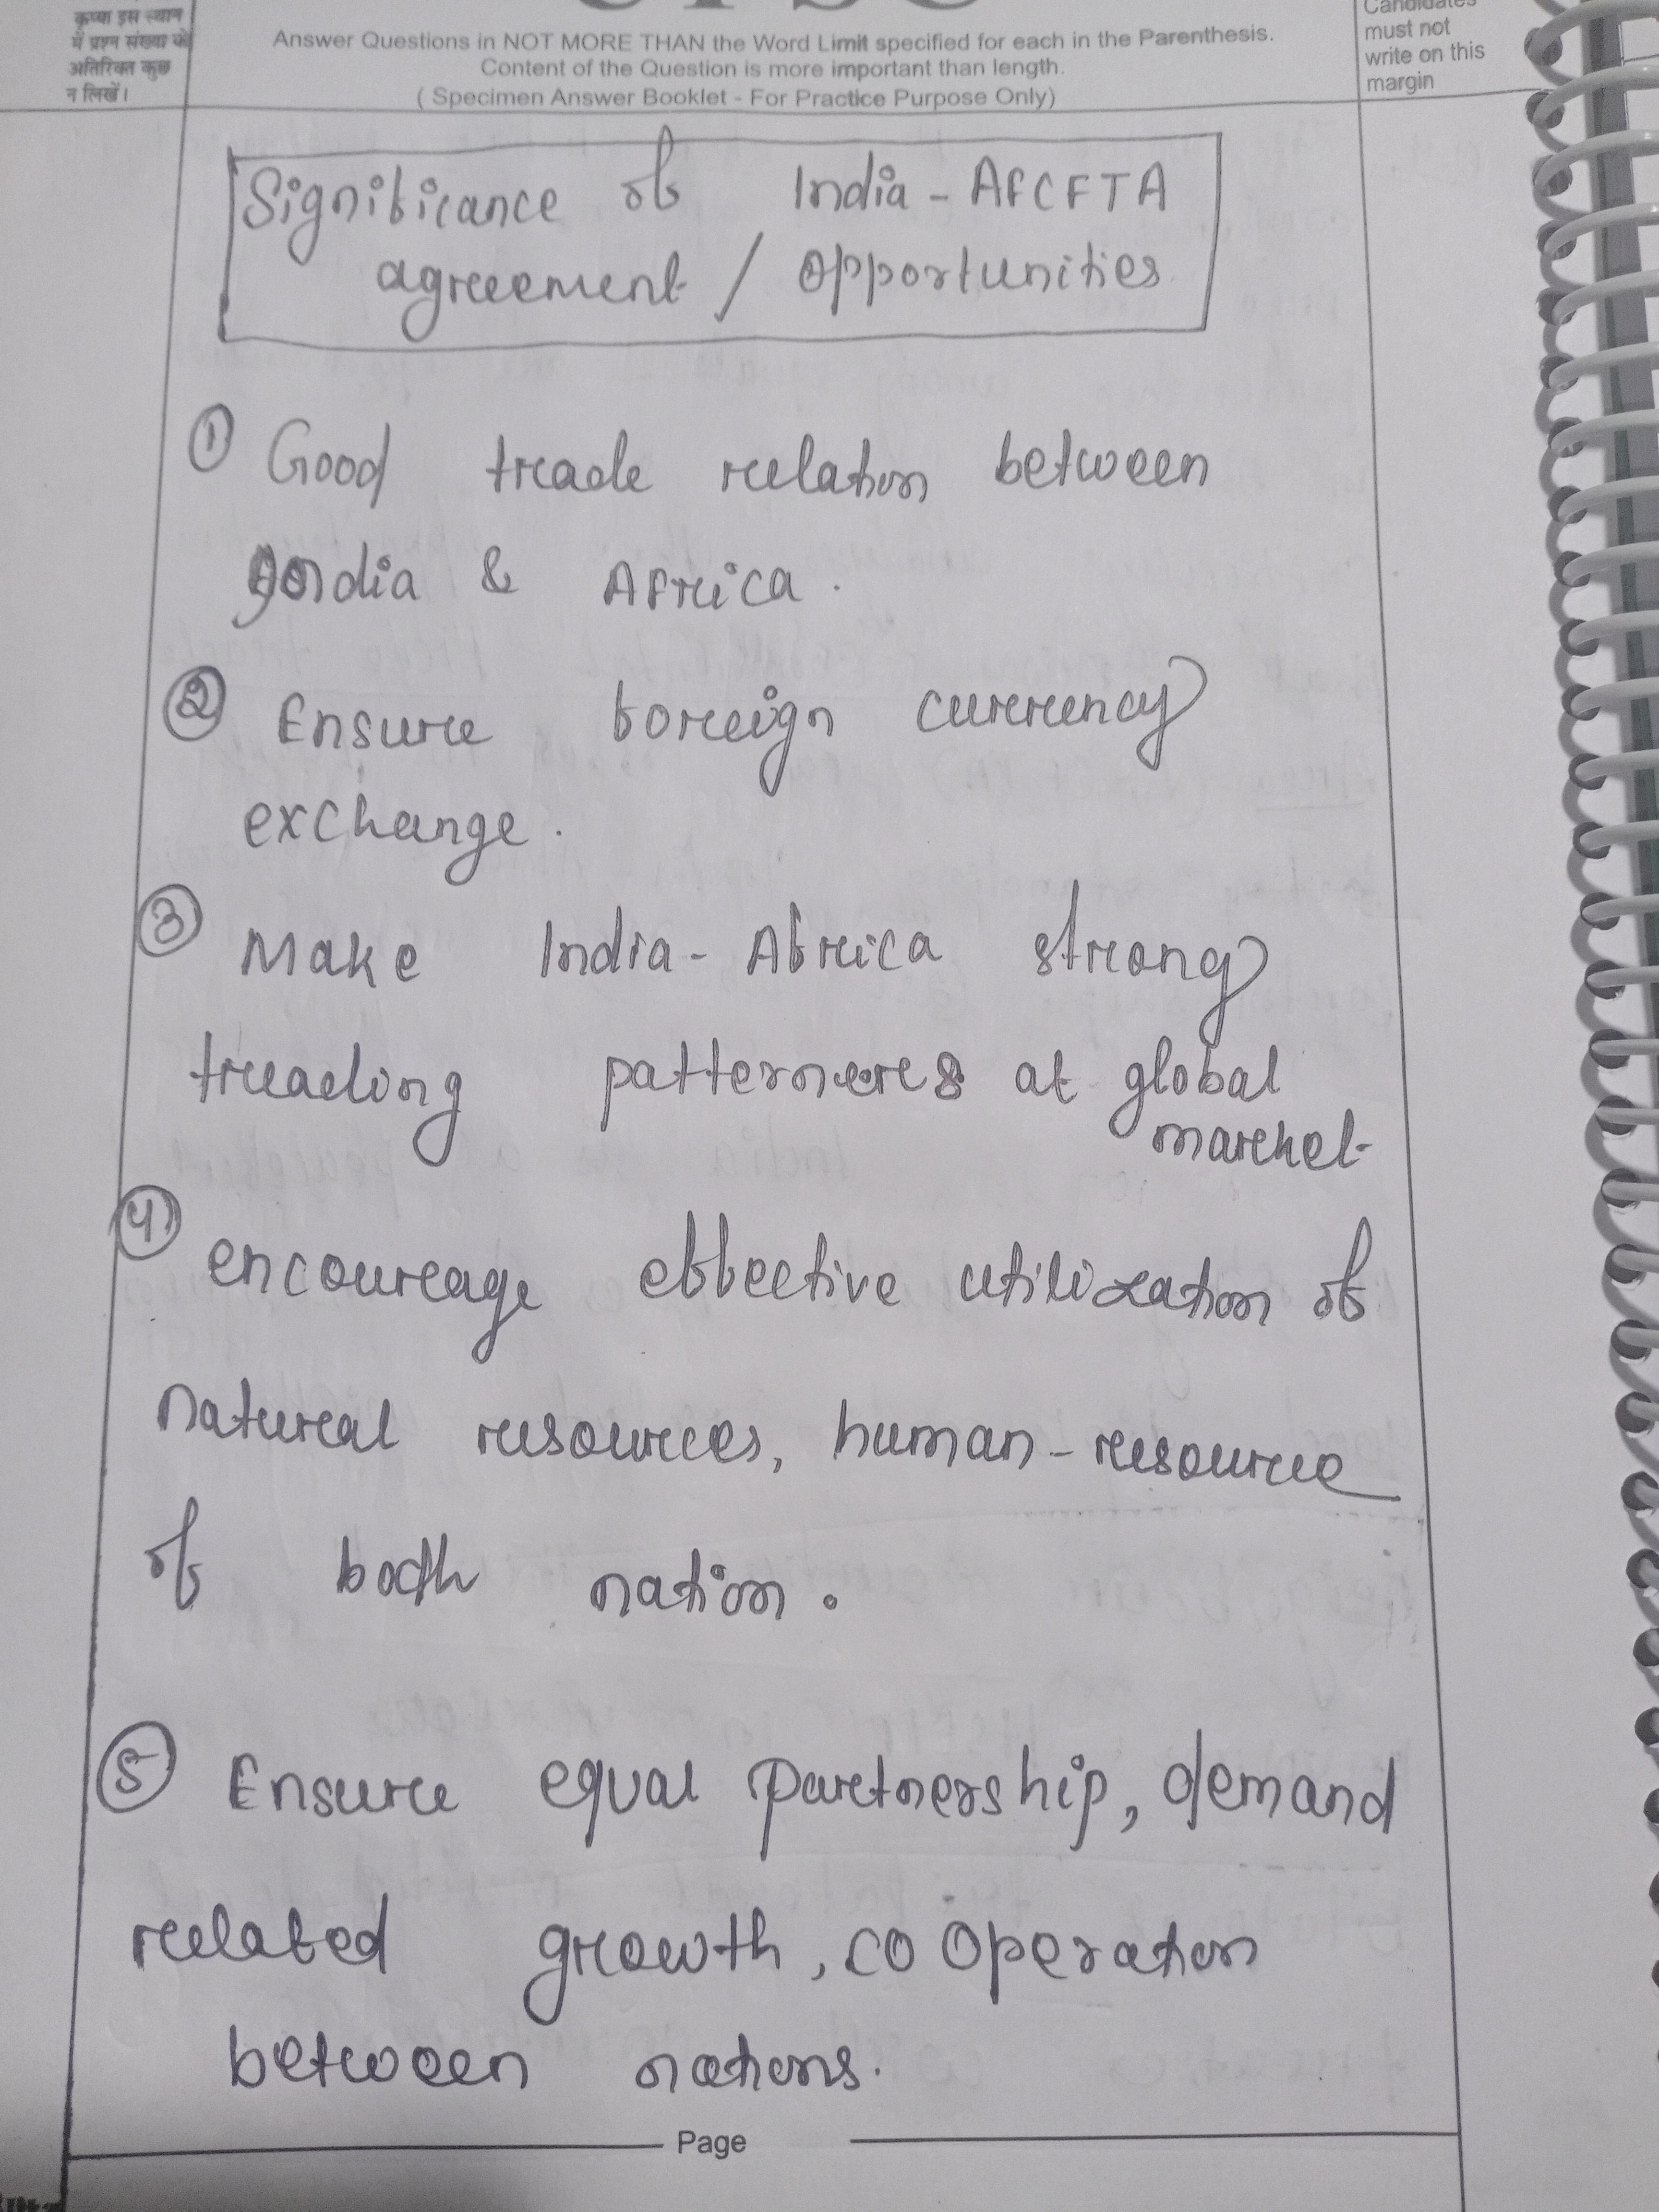 कृप्या इस स्थान
में प्रश्न संख्या के
अतिरिक्त कुछ
न लिखें।
Answer Questions in NOT MORE THAN the Word Limit specified for each in the Parenthesis.
Content of the Question is more important than length.
( Specimen Answer Booklet - For Practice Purpose Only)
Candidates
must not
write on this
margin
Significance of India - AFCFTA
agreement / Opportunities
① Good trade relation between
India & Africa.
② Ensure foreign currency
exchange.
③ Make India - Africa strong
trading patterners at global
market
④ encourage effective utilization of
natural resources, human-resource
of both nation.
⑤ Ensure equal partnership, demand
related growth, co operation
between nations.
Page